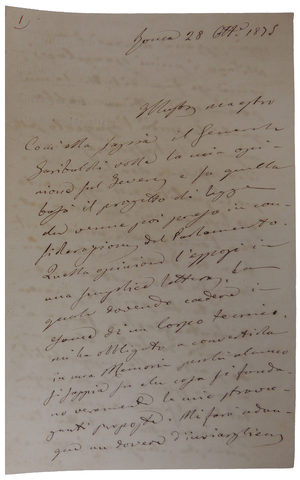 1
28 Ott. 1875
Illustre maestro
Come ella saprà il Generale
Garibaldi volle la mia opi-
nione sul Tevere e su quella
basò il progetto di legge
che venne poi preso in con-
siderazione dal Parlamento.
Quella opinione l'esposi in
una semplice lettera, la
quale dovendo cadere in
esame di un Corpo tecnico,
mi ha obbligato a convertirla
in una Memoria perché almeno
si sappia su che cosa si fonda-
no veramente le mie strava-
ganti proposte. Mi farò adun-
que un dovere d'inviargliene